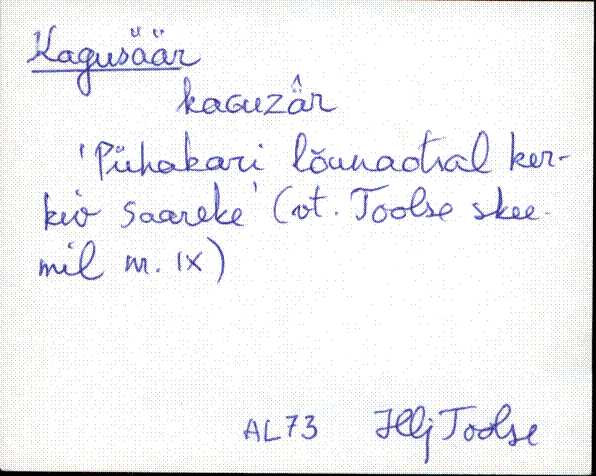 Kagusäär
kaɢuzä̂r
'Pühakari lõunaotsal ker-
kiv saareke' (vt. Toolse skee-
mil nr. IX)
AL73 Hlj Toolse